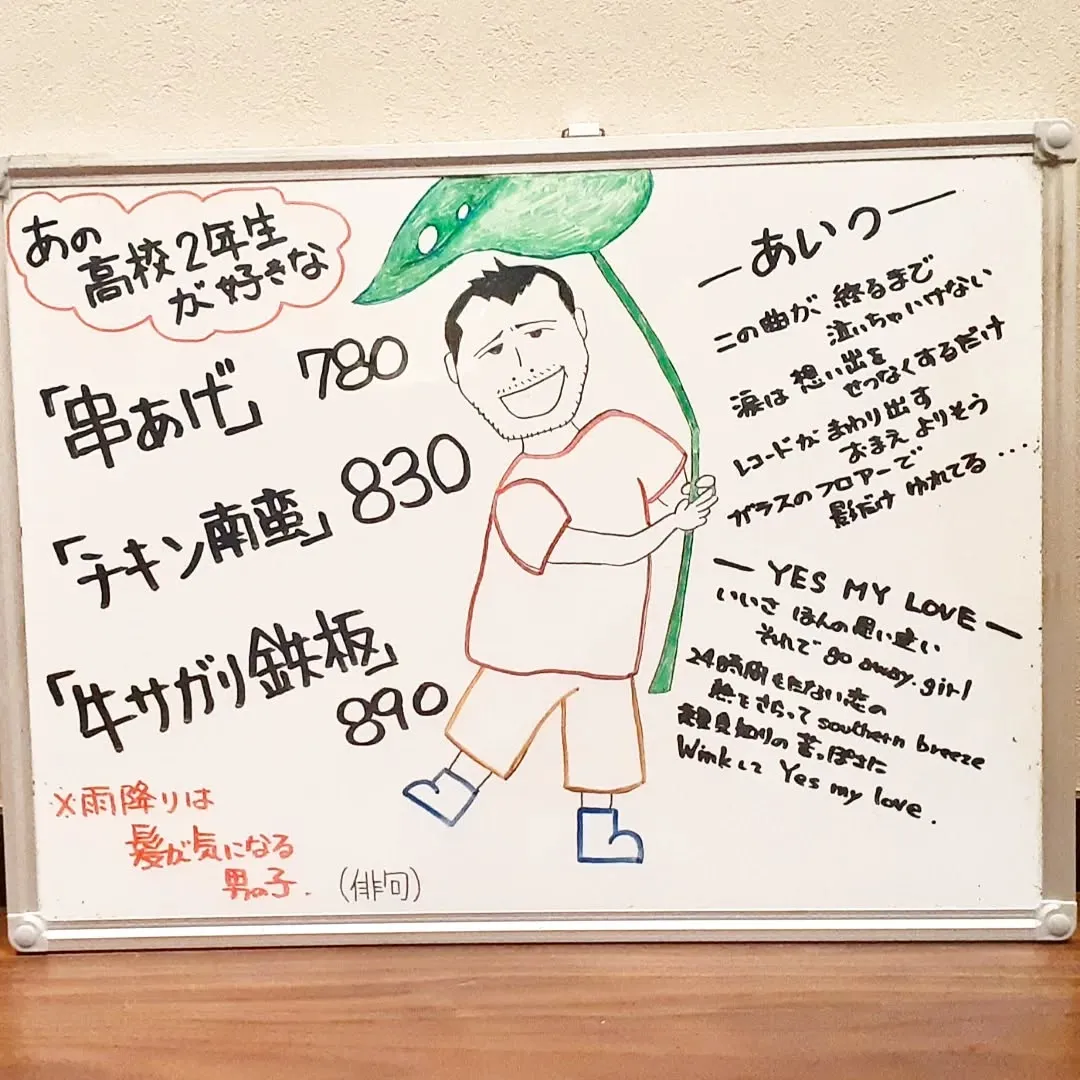 あの
高校2年生
が好きな
「串あげ」 780
「チキン南蛮」 830
「牛サガリ鉄板」
890
※雨降りは
髪が気になる
男の子.
(俳句)
ーあいつー
この曲が 終るまで
泣いちゃいけない
涙は 想い出を
せつなくするだけ
レコードが まわり出す
おまえ よりそう
ガラスのフロアーで
影だけ ゆれてる ‥‥
ー YES MY LOVE ー
いいさ ほんの思い違い
それで go away. girl
24時間もたない恋の
熱をさらって southern breeze
顔見知りの 苦っぽさに
Winkして Yes my love.